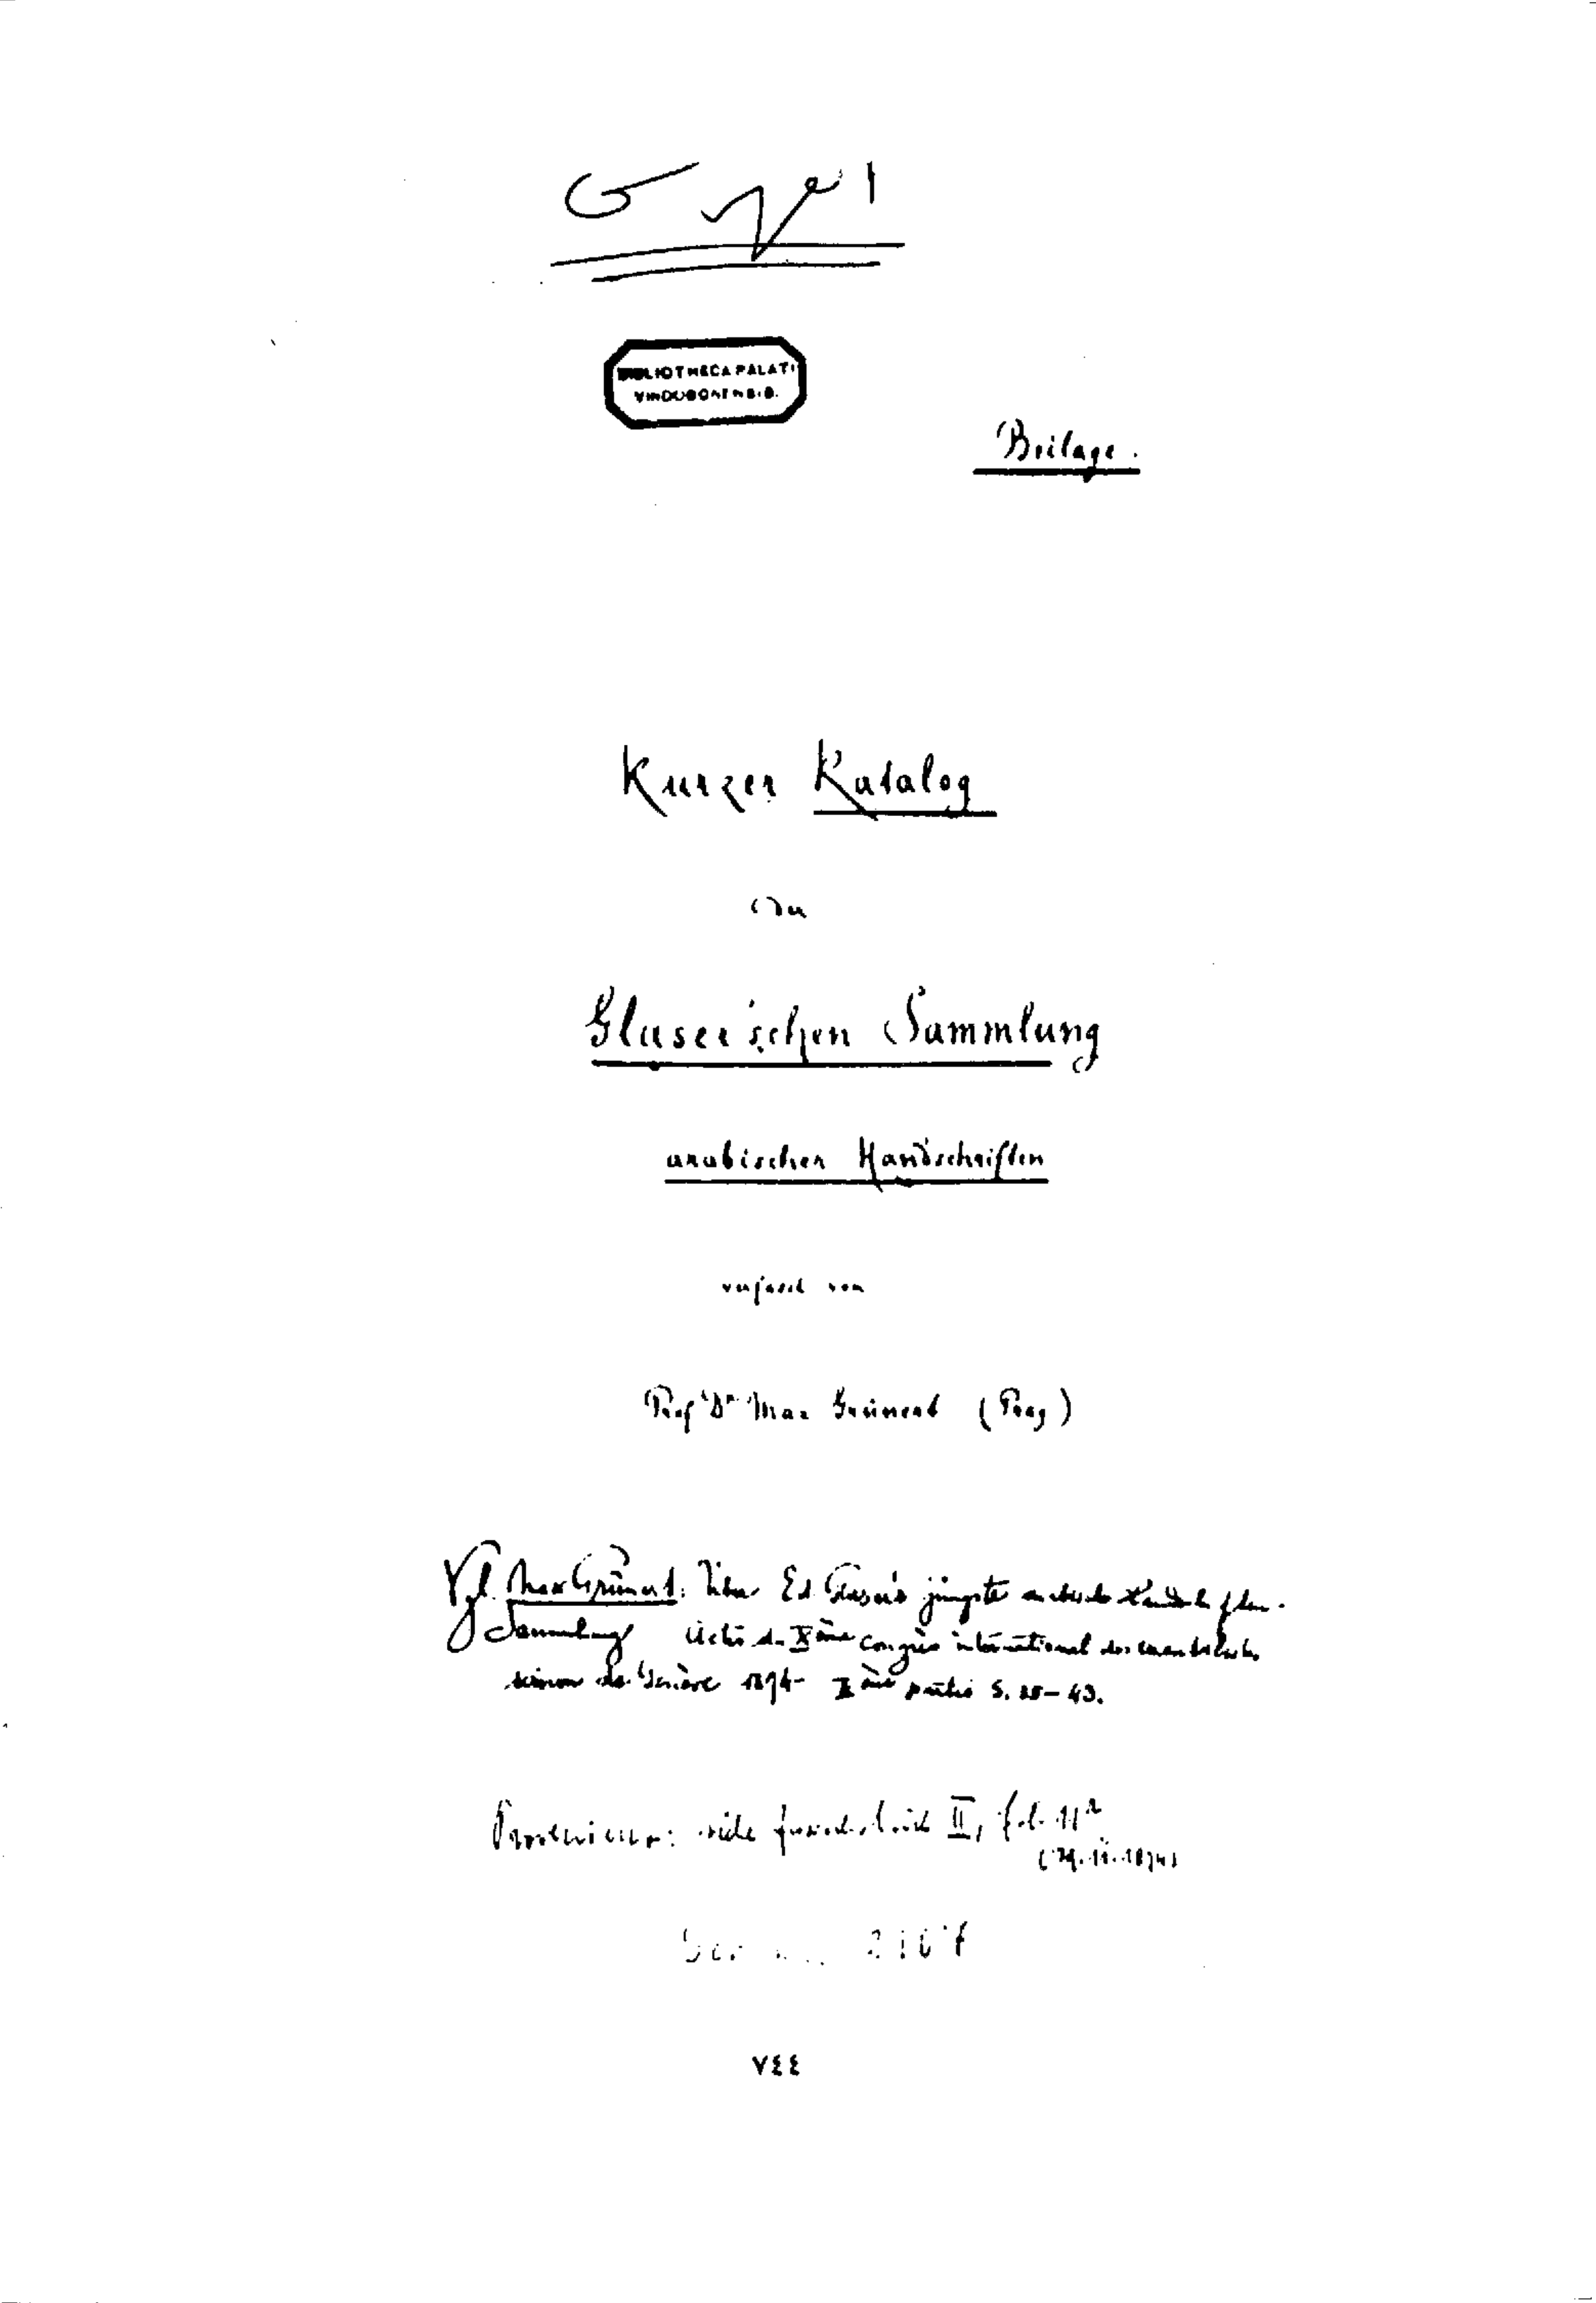 BIBLIOTHECA PALATI
VINDOBONENSIS.
Beilage.
Kurzer Katalog
der
Glaser'schen Sammlung
arabischer Handschriften
verfasst von
Prof Dr Max Grünert (Prag)
Vgl. Max Grünert: Über Ed. Glaser's jüngste arabische Handschriften-
Sammlung Actes du Xème congrès international des orientalistes
session de Genève 1894 partie S. 35-43.
Provenienz: vide II, fol. 11a
٧٤٤